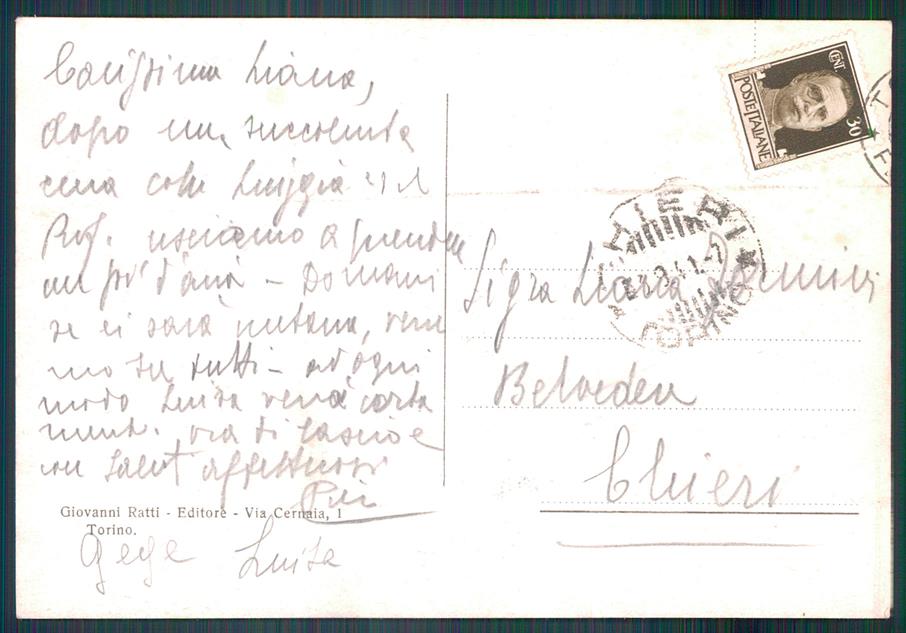 Carissima Liana,
dopo una succulenta
cena colla Luiggia e il
Prof. usciamo a prendere
un po' d'aria - Domani
se ci sarà mutana, verre
mo su tutti - ad ogni
modo Luisa verrà certa
mente. ora ti lascio e
con saluti affettuosi
Giovanni Ratti - Editore - Via Cernaia, 1
Torino.
Gege Luisa
CENT. 30
POSTE ITALIANE
CHIERI
TORINO
Sigra Liana
Belvedere
Chieri